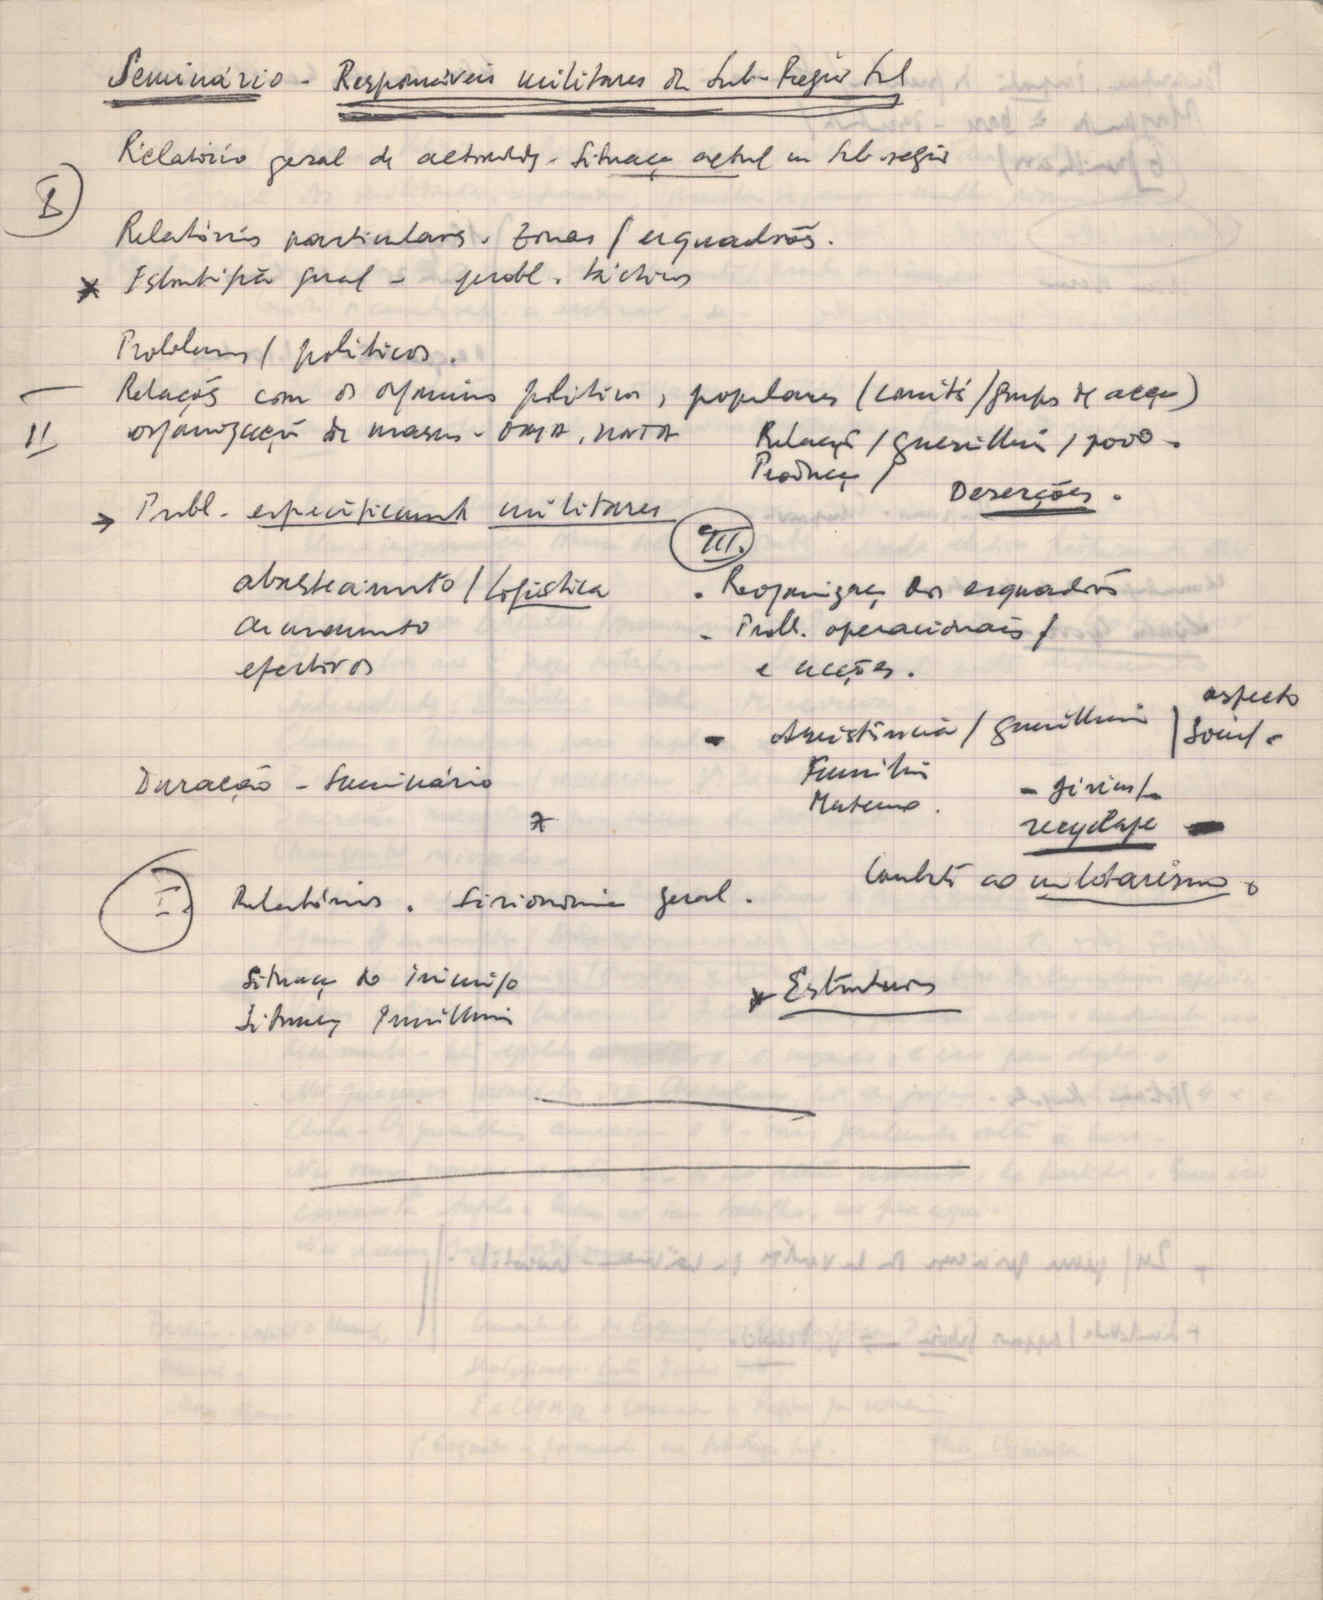 Seminário - Responsáveis militares da Sub-Região Sul
Relatório geral de actividds - Situaç actual na Sub-região
I
Relatórios particulares. Zonas / esquadrões.
* geral - probl. tácticos
Problemas / políticos.
Relações com os organismos políticos, populares (comité/grupo de acção)
II
organização de massas - OMA, UNTA
Relação / guerrilha / povo -
Produção /
Deserções.
→ Probl. especificamente militares
III.
abastecimento / Logística
armamento
efectivos
- Reorganizaç dos esquadrões
- Probl. operacionais /
e acções.
- Assistência / guerrilheiro / aspecto social.
Família
Material.
recyclage
Duração - Seminário
*
Combate ao militarismo.
I.
Relatórios. Fisionomia geral.
Situaç do inimigo
Situaç guerrilha
* Estruturas